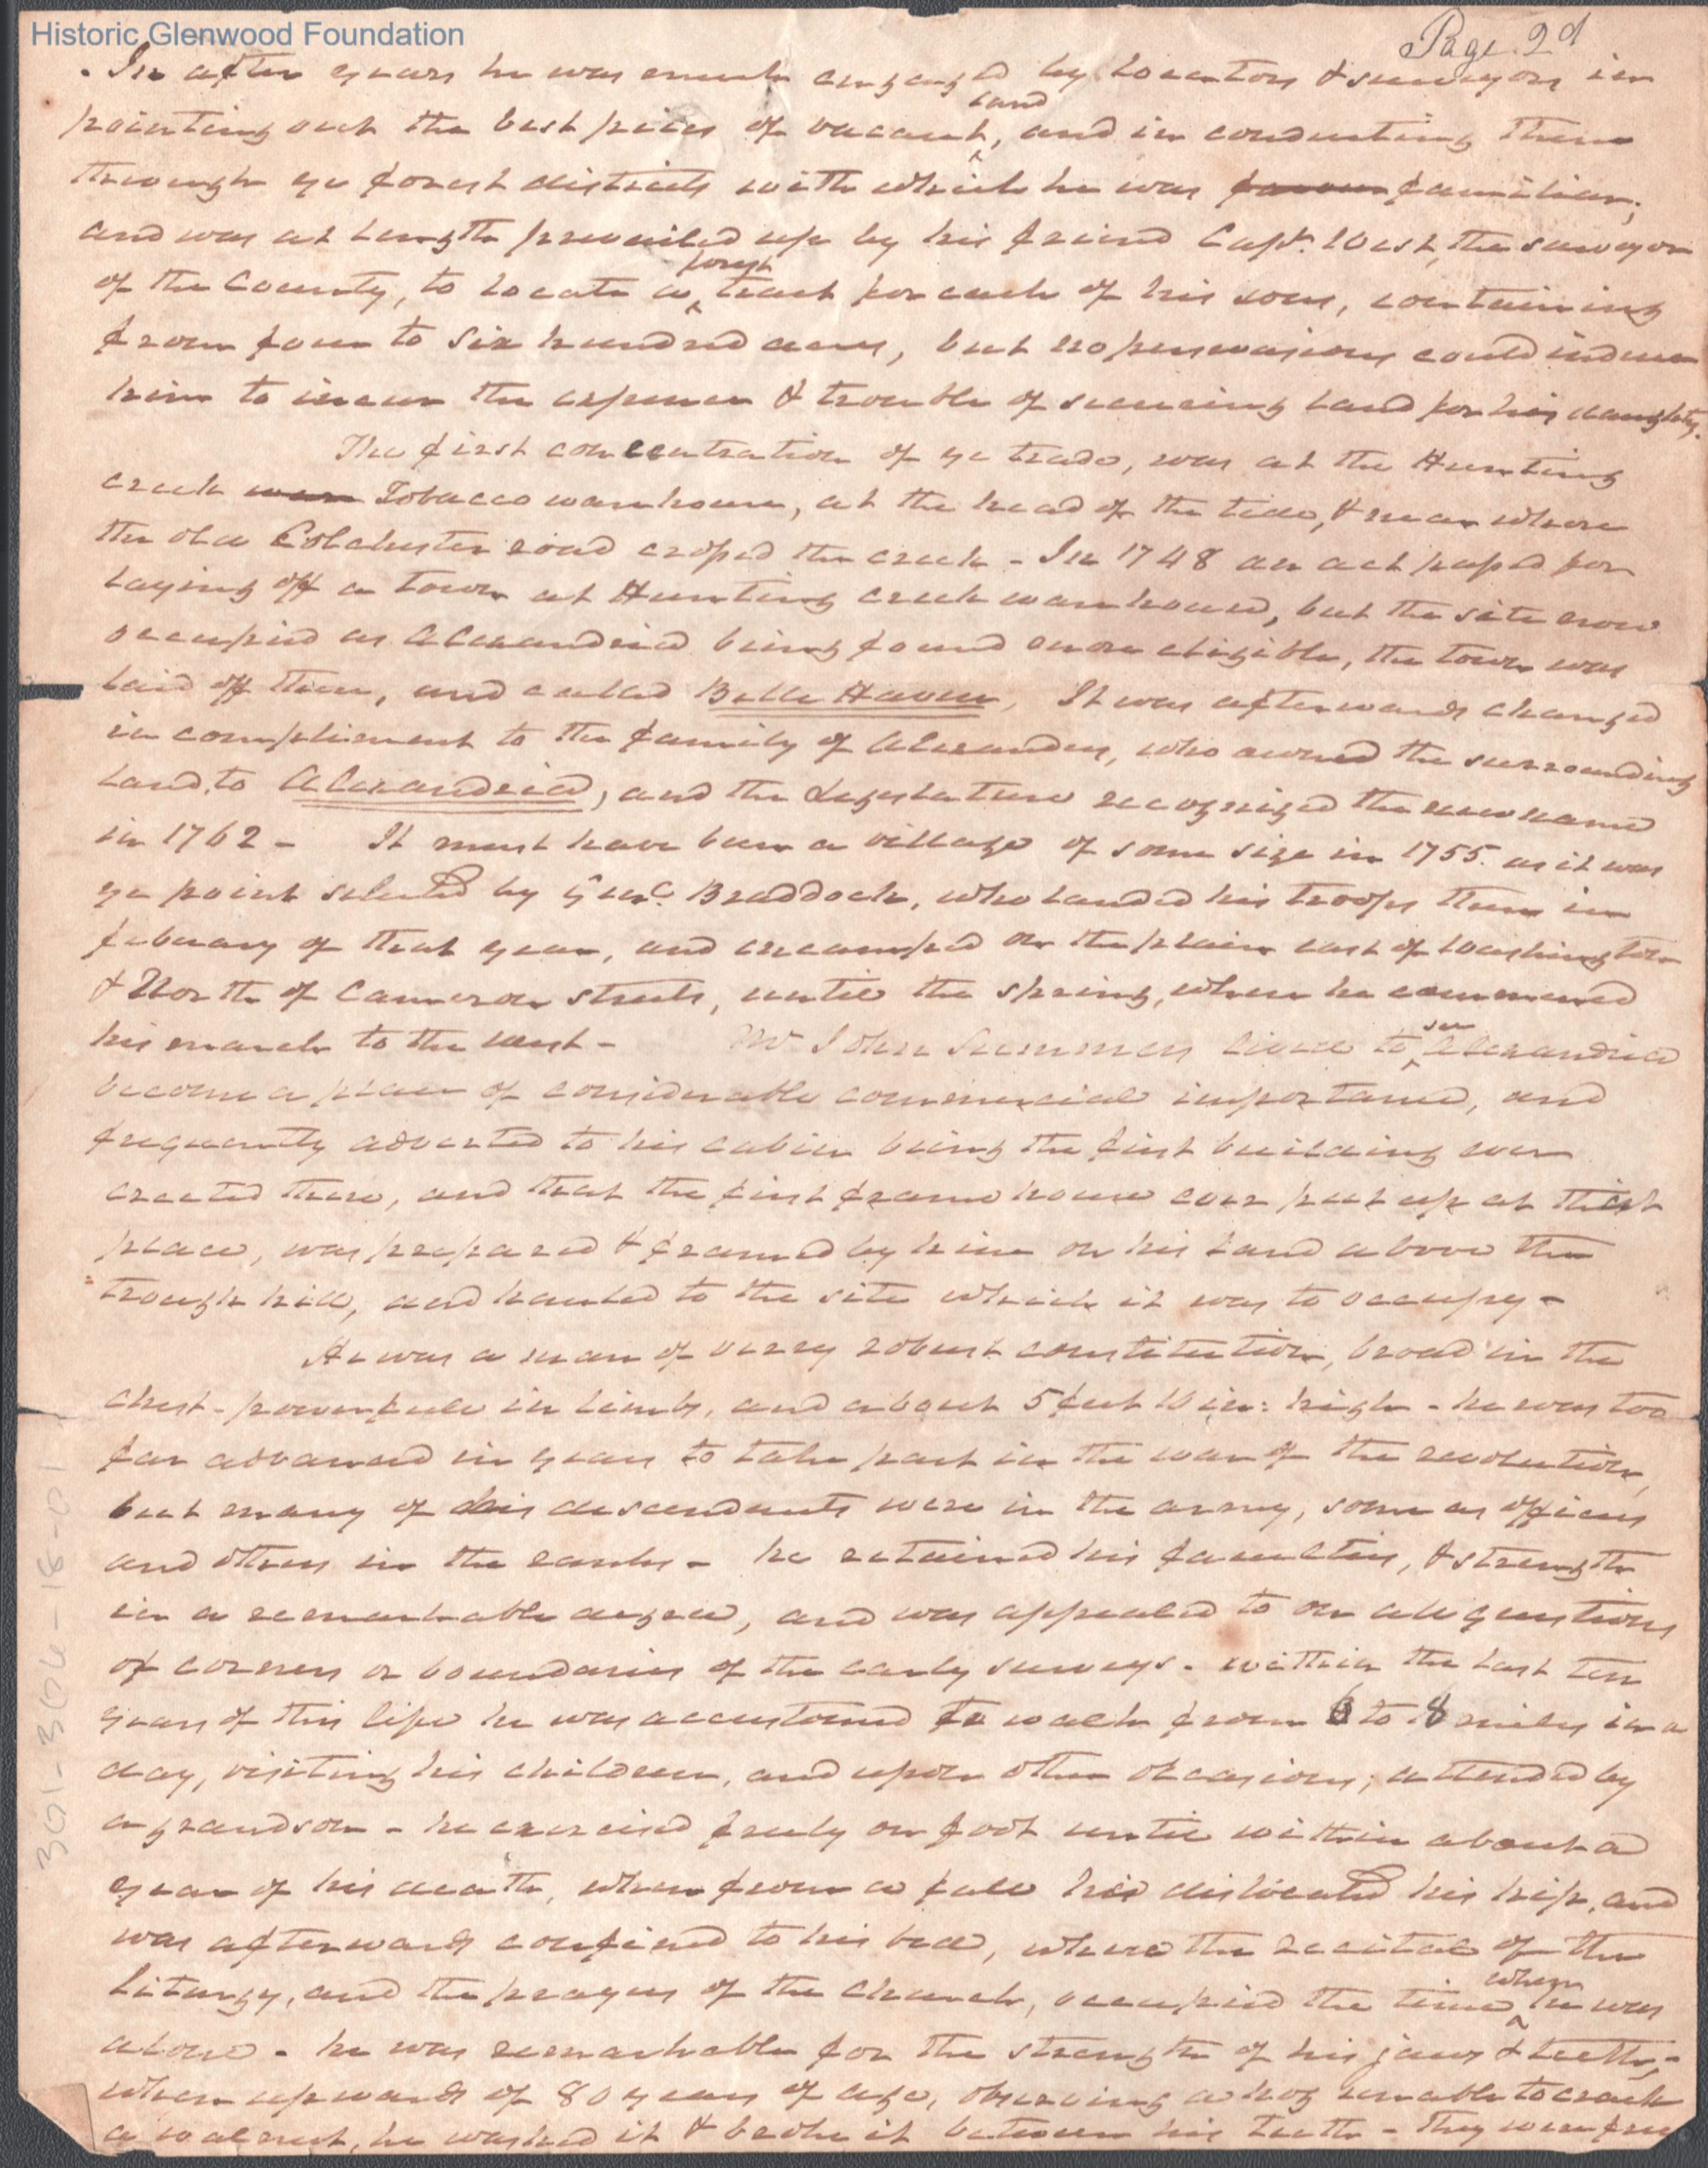 Historic Glenwood Foundation
Page 2d
. In after years he was much engaged by locators & surveyors in
pointing out the best pieces of vacant ^land, and in conducting them
through ye forest districts with which he was familiar;
and was at length prevailed up by his friend Capt. West, the surveyor
of the County, to locate a ^forest tract for each of his sons, containing
from four to six hundred acres, but no persuasions could induce
him to incur the expense & trouble of securing land for his daughters.
The first concentration of ye trade, was at the Hunting
creek Tobacco warehouse, at the head of the tide, & near where
the old Colchester road crossed the creek - In 1748 an act passed for
laying off a town at Hunting creek warehouse, but the site now
occupied as Alexandria being found more eligible, the town was
laid off there, and called Belle Haven, It was afterwards changed
in compliment to the family of Alexanders, who owned the surrounding
land, to Alexandria, and the Legislature recognized the new name
in 1762 - It must have been a village of some size in 1755. as it was
ye point selected by Genl. Braddock, who landed his troops there in
febuary of that year, and encamped on the plain east of Washington
& North of Cameron streets, until the spring, when he commenced
his march to the west - Mr John Summers lived to ^see Alexandria
become a place of considerable commercial importance, and
frequently adverted to his cabin being the first building ever
erected there, and that the first frame house ever put up at that
place, was prepared & framed by him on his land above the
trough hill, and hauled to the site which it was to occupy -
He was a man of verry robust constitution, broad in the
chest - powerfull in limbs, and about 5 feet 10 in: high - he was too
far advanced in years to take part in the war of the revolution,
but many of his descendants were in the army, some as officers
and others in the ranks - he retained his faculties, & strength
in a remarkable degree, and was appealed to on all questions
of corners or boundaries of the early surveys - within the last ten
years of this life he was accustomed to walk from 6 to 8 miles in a
day, visiting his children, and upon other occasions; attended by
a grandson - he exercised freely on foot until within about a
year of his death, when from a fall he dislocated his hip, and
was afterwards confined to his bed, where the recital of the
Liturgy, and the prayers of the church, occupied the time ^when he was
alone - he was remarkable for the strength of his jaws & teeth, -
when upwards of 80 years of age, observing a hog unable to crack
a walnut, he washed it & broke it between his teeth - They were free
301-304-18-01